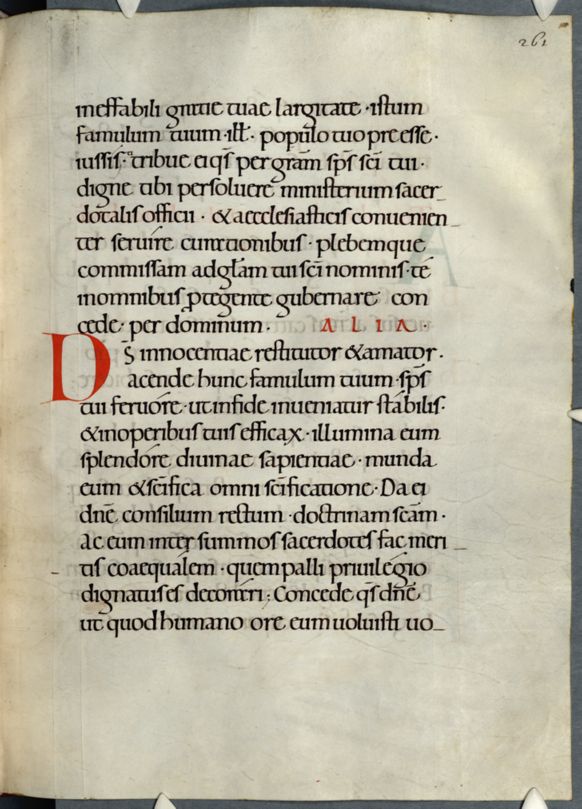 261
ineffabili gratiae tuae largitate · istum
famulum tuum · ill̅ · populo tuo preesse ·
iussis · tribue ei qs̅ per gr̅am sp̅s sc̅i tui ·
digne tibi persoluere ministerium sacer_
dotalis officii · & aecclesiasticis conuenien_
ter seruire cunctionibus · plebemque
commissam ad gl̅am tui sc̅i nominis · te
in omnibus ptegente gubernare con
cede · per dominum · ALIA ·
DS̅ innocentiae restitutor & amator ·
acende hunc famulum tuum · sp̅s
tui feruore · ut in fide inueniatur stabilis ·
& in operibus tuis efficax · illumina eum
splendore diuinae sapientiae · munda
eum & sc̅ifica omni sc̅ificatione · Da ei
dn̅e consilium rectum · doctrinam sc̅am ·
ac eum inter summos sacerdotes fac meri_
tis coaequalem · quem palli priuilegio
dignatus es decorari ; Concede qs̅ dn̅e
ut quod humano ore eum uoluisti uo_